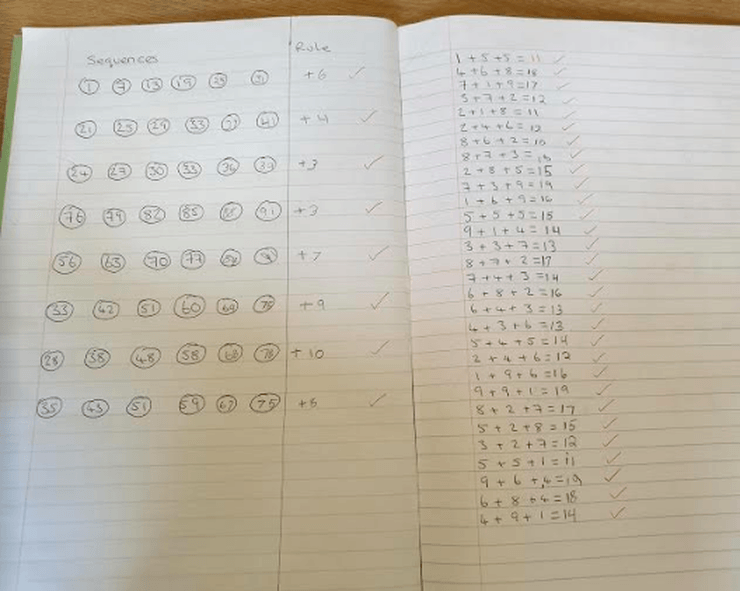 Sequences Rule
1 7 13 19 25 31 +6
21 25 29 33 37 41 +4
24 27 30 33 36 39 +3
76 79 82 85 88 91 +3
56 63 70 77 +7
33 42 51 60 69 +9
28 38 48 58 68 78 +10
35 43 51 59 67 75
1+5+5=11
4+6+8=18
7+1+9=17
3+7+2=12
2+1+8=11
2+4+6=12
8+6+2=
8+7+3=
2+8+5=15
7+3+9=19
1+6+9=16
5+5+5=15
9+1+4=14
3+3+7=13
8+7+2=17
7+4+3=14
6+8+2=16
6+4+3=13
4+3+6=13
5+4+5=14
2+4+6=12
1+9+6=16
9+9+1=19
8+2+7=17
5+2+8=15
3+2+7=12
5+5+1=11
9+6+4=19
6+8+4=18
4+9+1=14